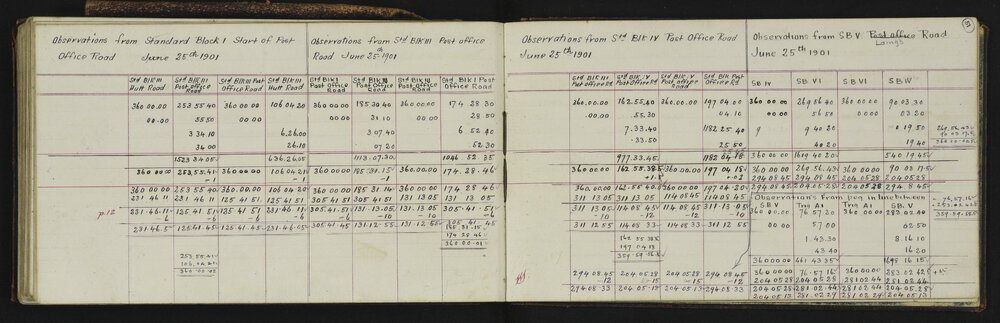 Observations from Standard Block I Start of Post
Office Road June 25th 1901
Std Blk III Hutt Road
Std Blk III Post Office Road
Std Blk III Post Office Road
Std Blk III Hutt Road
360 00.00 253 55 40 360 00 00 106 04 20
00.00 55 50 00 00 04 10
3 34 10 6.26.00
34 00 26.10
1523 34 05 636.26.05
360 00 00 253.55.41 360.00.00 106 04 21
-1
360 00 00 253 55 40 360.00.00 106 04 20
231 46 11 231 46 11 125 41 51 125 41 51
p.12 231.46.11 125 41 51 125 41 51 231.46.11
-6 -6 -6 -6
231.46.5 125.41.45 125.41.45 231.46.05
253.55.41
106.04.21
360.00.02
Observations from Std Blk III Post office
Road June 25th 1901
Std Blk I Post Office Road
Std Blk III Post Office Road
Std Blk III Post Office Road
Std Blk I Post Office Road
360 00 00 185 30 40 360.00.00 174 28 30
00 00 31 10 00.00 28 50
3 07 40 6 52 40
07 20 52 30
1113.07.30 1046 52 35
360 00.00 185.31.15 360 00.00 174.28.46
360 00 00 185 31 14 360 00 00 174 28 46
305 41 51 305 41 51 131 13 05 131 13 05
305.41.51 131.13.05 131 13 05 305.41.51
-6 -10 -10 -6
305.41.45 131.12.55 131.12.55 305 41 45
185.31.15
174 28 46
360 00.01
Observations from Std Blk IV Post Office Road
June 25th 1901
Std Blk III Post Office Rd
Std Blk V Post Office Rd
Std Blk V Post office Rd
Std Blk Post Office Rd
360.00.00 162.55.40 360 00 00 197 04 00
.00.00 .55.30 04 10
7.33.40 1182 25 40
.33.50 25 50
977.33.45
360 00.00 162 55 38.5 360.00.00 197 04 18
360.00.00 162 55 40 360 00.00 197 04.20
311 13 05 311 13 05 114 08 45 114 08 45
311 13 05 114 08 45 114 08 45 311.13 05
-10 -12 -12 -10
311 12 55 114 08 33 114 08 33 311 12 55
162 55 38.5
197 04 18
359.59.56.5
294 08.45 204 05 28 204 05 28 294 08 45
-12 -15 -15 -12
294 08 33 204.05.13 204.05.13 294 08 33
51
Observations from SB V Post office Road
Laings
June 25th 1901
SB IV SB VI SB VI SB IV
360 00 00 269 56 40 360 00 00 90 03.30
00 00 56 50 00 00 03 20
9 9 40 20 0 19 50
40 20 19 40
360 00 00 1619 40 20 540 19 45
269.56.43
90 03 17.5
360 00 00.5
360 00 00 269 56.43 360 00 00 90 03 17.5
294 08 45 294 08 45 204 05 28 204 05 28
294 08 45 204 05 28 204 05 28 294.8 45
Observations from peg in line between
SB V Trig A1 Trig A1 SB V
360 00 00 76 57 20 360 00 00 283 02 40
00 00 57 00 02 50
1.43.30 8.16 10
43 40 16.20
360 00 00 461 43 35 1698 16 15
360 00 00 76.57 16 360 00 00 283 02 42
204 05 28 204 05 28 281 02 44 281 02 44
204 05 28 281 02 44 281 02 44 204 05 28
204 05 13 281 02 29 281 02 29 204 05 13
76.57.16
283.02.42.5
359.59.58.5